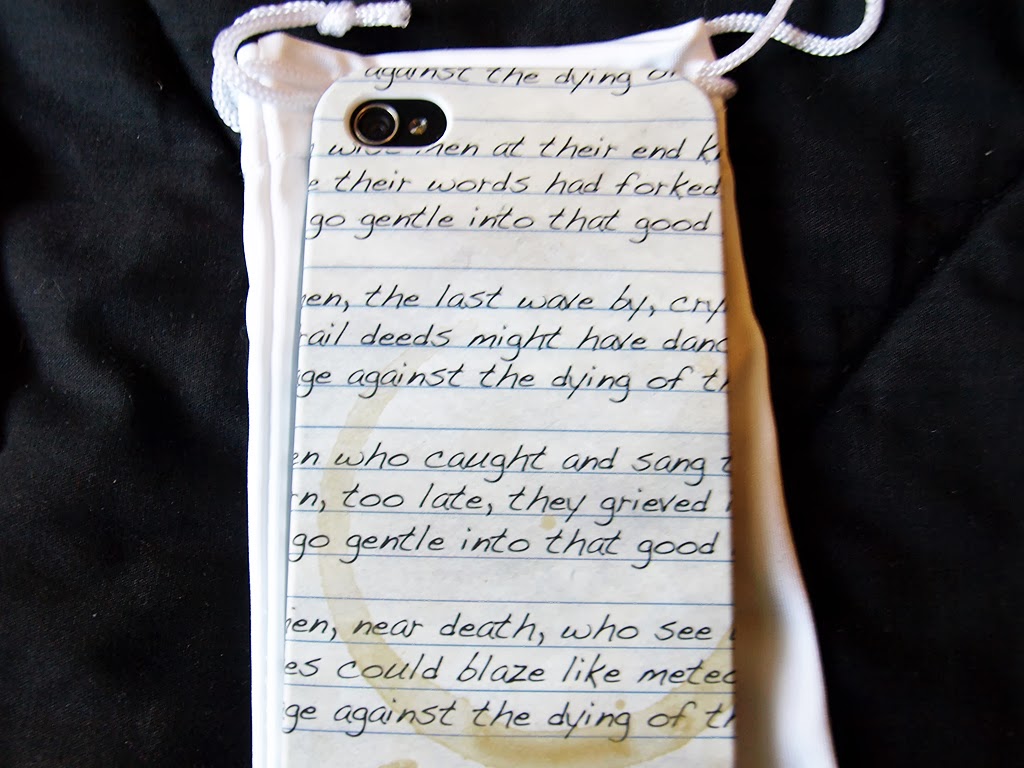 against the dying of
men at their end
their words had forked
go gentle into that good
en, the last wave by, cry
ail deeds might have danc
ge against the dying of th
en who caught and sang
n, too late, they grieved
go gentle into that good
en, near death, who see
es could blaze like meteo
ge against the dying of th